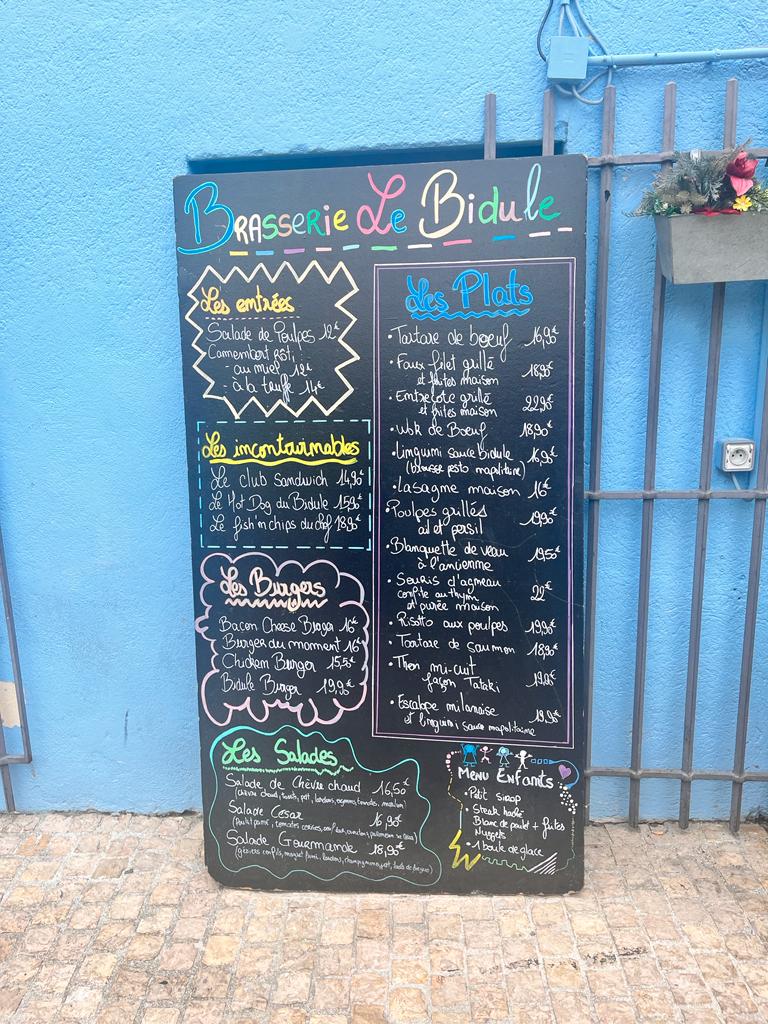 Brasserie Le Bidule
Les entrées
Salade de Poulpes 12€
Camembert rôti :
- au miel 12€
- à la truffe 14€
Les incontournables
Le club Sandwich 14,90€
Le Hot Dog du Bidule 15,90€
Le fish'n chips du chef 18,90€
Les Burgers
Bacon Cheese Burger 16€
Burger du moment 16€
Chicken Burger 15,50€
Bidule Burger 19,90€
Les Salades
Salade de Chèvre chaud 16,50€
Salade Cesar 16,90€
Salade Gourmande 18,90€
Les Plats
• Tartare de boeuf 16,90€
• Faux filet grillé 18,90€
et frites maison
• Entrecote grillé 22,90€
et frites maison
• Wok de Boeuf 18,90€
• Linguini sauce Bidule 16,90€
• Lasagne maison 16€
• Poulpes grillés 19,90€
ail et persil
• Blanquette de veau 19,50€
à l'ancienne
• Souris d'agneau 22€
confite au thym
et purée maison
• Risotto aux poulpes 19,90€
• Tartare de saumon 18,90€
• Thon mi-cuit 19,90€
façon Tataki
• Escalope milanaise 19,90€
et linguini sauce napolitaine
Menu Enfants
• Petit sirop
• Steak haché
Blanc de poulet + frites
Nuggets
• 1 boule de glace